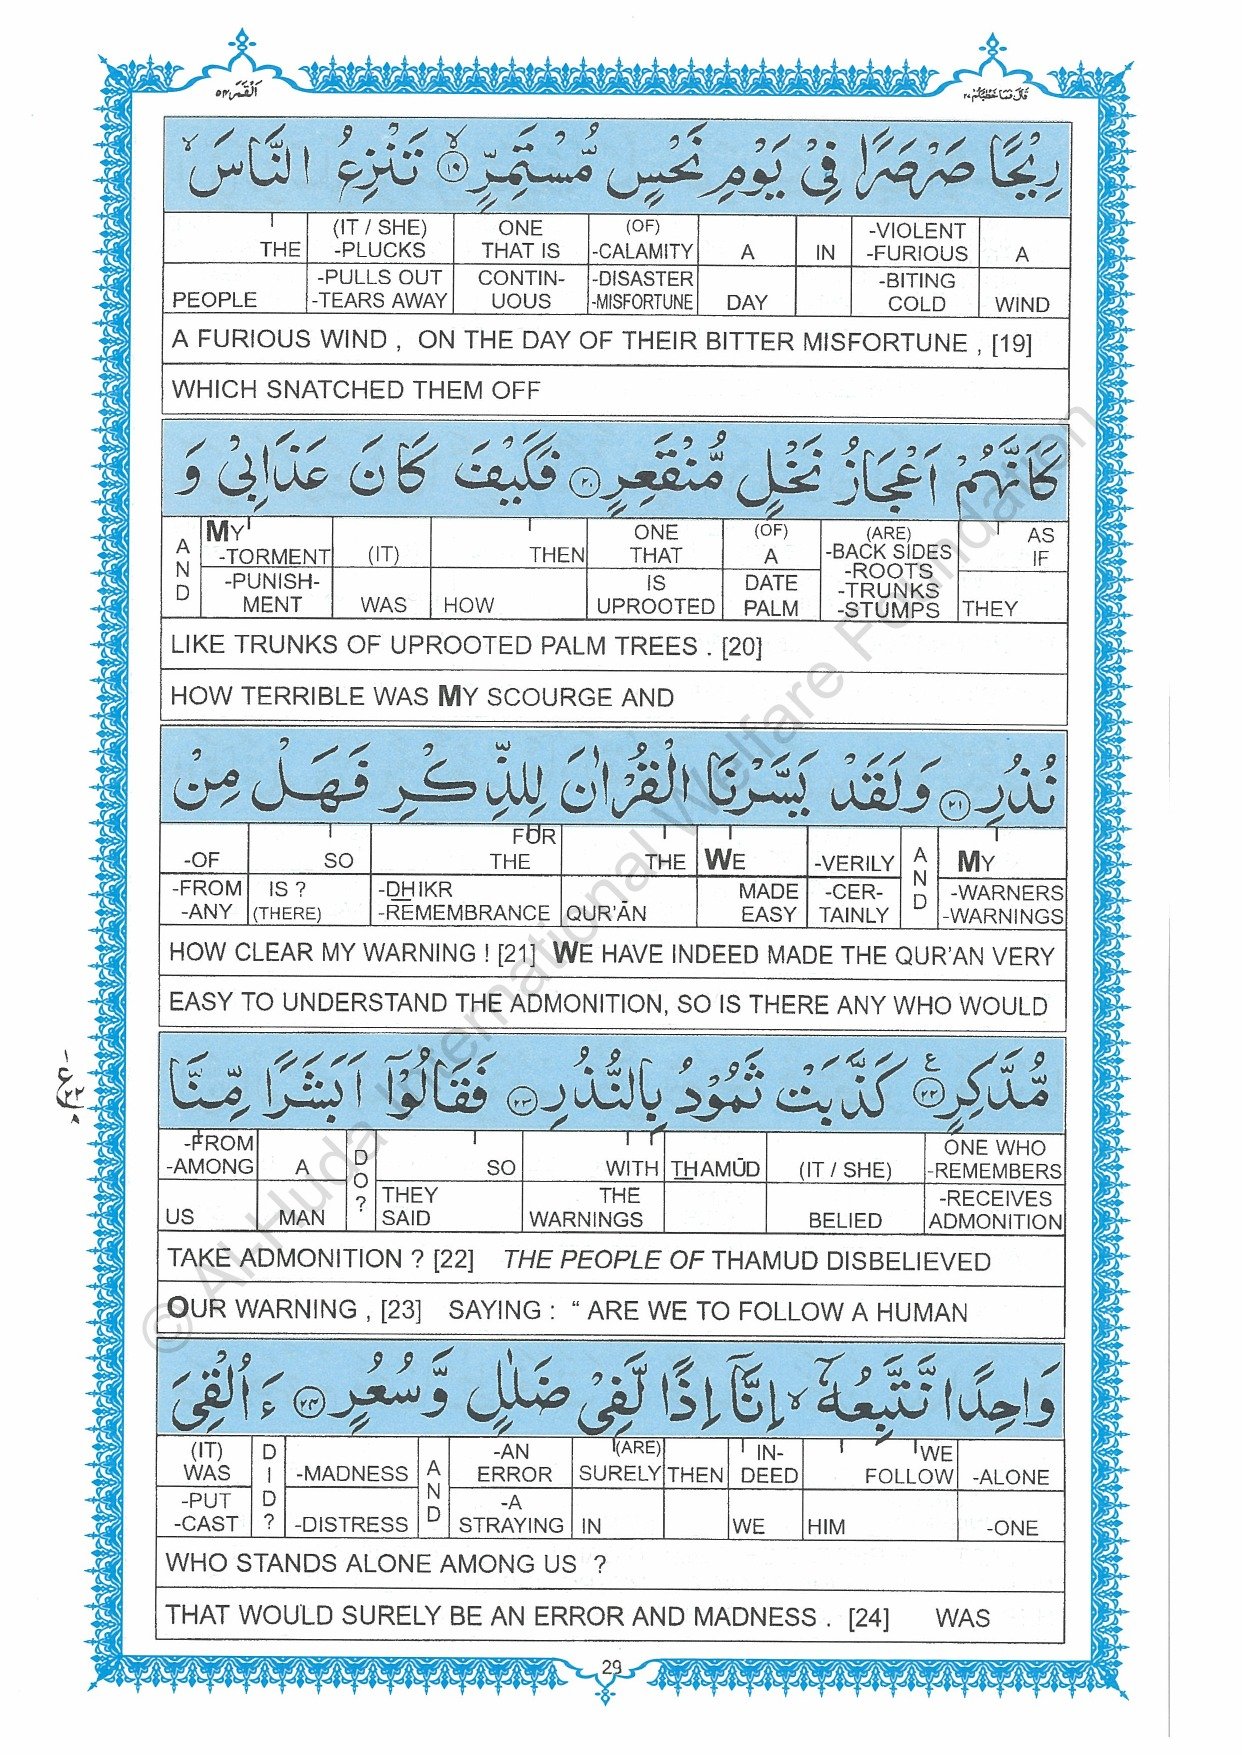 اَلْقَمَر ٥٤ قَالَ فَمَا خَطْبُكُمْ ٢٧
رِيْحًا صَرْصَرًا فِيْ يَوْمِ نَحْسٍ مُّسْتَمِرٍّ ١٩ تَنْزِعُ النَّاسَ
THE (IT / SHE) -PLUCKS ONE THAT IS (OF) -CALAMITY A IN -VIOLENT -FURIOUS A
PEOPLE -PULLS OUT -TEARS AWAY CONTIN- UOUS -DISASTER -MISFORTUNE DAY -BITING COLD WIND
A FURIOUS WIND , ON THE DAY OF THEIR BITTER MISFORTUNE , [19]
WHICH SNATCHED THEM OFF
كَاَنَّهُمْ اَعْجَازُ نَخْلٍ مُّنْقَعِرٍ ٢٠ فَكَيْفَ كَانَ عَذَابِيْ وَ
AND MY -TORMENT (IT) THEN ONE THAT (OF) A (ARE) -BACK SIDES -ROOTS AS IF
-PUNISH- MENT WAS HOW IS UPROOTED DATE PALM -TRUNKS -STUMPS THEY
LIKE TRUNKS OF UPROOTED PALM TREES . [20]
HOW TERRIBLE WAS MY SCOURGE AND
نُذُرِ ٢١ وَلَقَدْ يَسَّرْنَا الْقُرْاٰنَ لِلذِّكْرِ فَهَلْ مِنْ
-OF SO FOR THE THE WE -VERILY AND MY
-FROM -ANY IS ? (THERE) -DHIKR -REMEMBRANCE QUR'ĀN MADE EASY -CER- TAINLY -WARNERS -WARNINGS
HOW CLEAR MY WARNING ! [21] WE HAVE INDEED MADE THE QUR'AN VERY
EASY TO UNDERSTAND THE ADMONITION, SO IS THERE ANY WHO WOULD
مُّدَّكِرٍ ٢٢ ع كَذَّبَتْ ثَمُوْدُ بِالنُّذُرِ ٢٣ فَقَالُوْٓا اَبَشَرًا مِّنَّا
-FROM -AMONG A DO? SO WITH THAMŪD (IT / SHE) ONE WHO -REMEMBERS
US MAN THEY SAID THE WARNINGS BELIED -RECEIVES ADMONITION
TAKE ADMONITION ? [22] THE PEOPLE OF THAMUD DISBELIEVED
OUR WARNING , [23] SAYING : “ ARE WE TO FOLLOW A HUMAN
وَاحِدًا نَّتَّبِعُهٗٓ اِنَّآ اِذًا لَّفِيْ ضَلٰلٍ وَّسُعُرٍ ٢٤ ءَاُلْقِيَ
(IT) WAS DID? -MADNESS AND -AN ERROR (ARE) SURELY THEN IN- DEED WE FOLLOW -ALONE
-PUT -CAST -DISTRESS -A STRAYING IN WE HIM -ONE
WHO STANDS ALONE AMONG US ?
THAT WOULD SURELY BE AN ERROR AND MADNESS . [24] WAS
29
© Al-Huda International Welfare Foundation